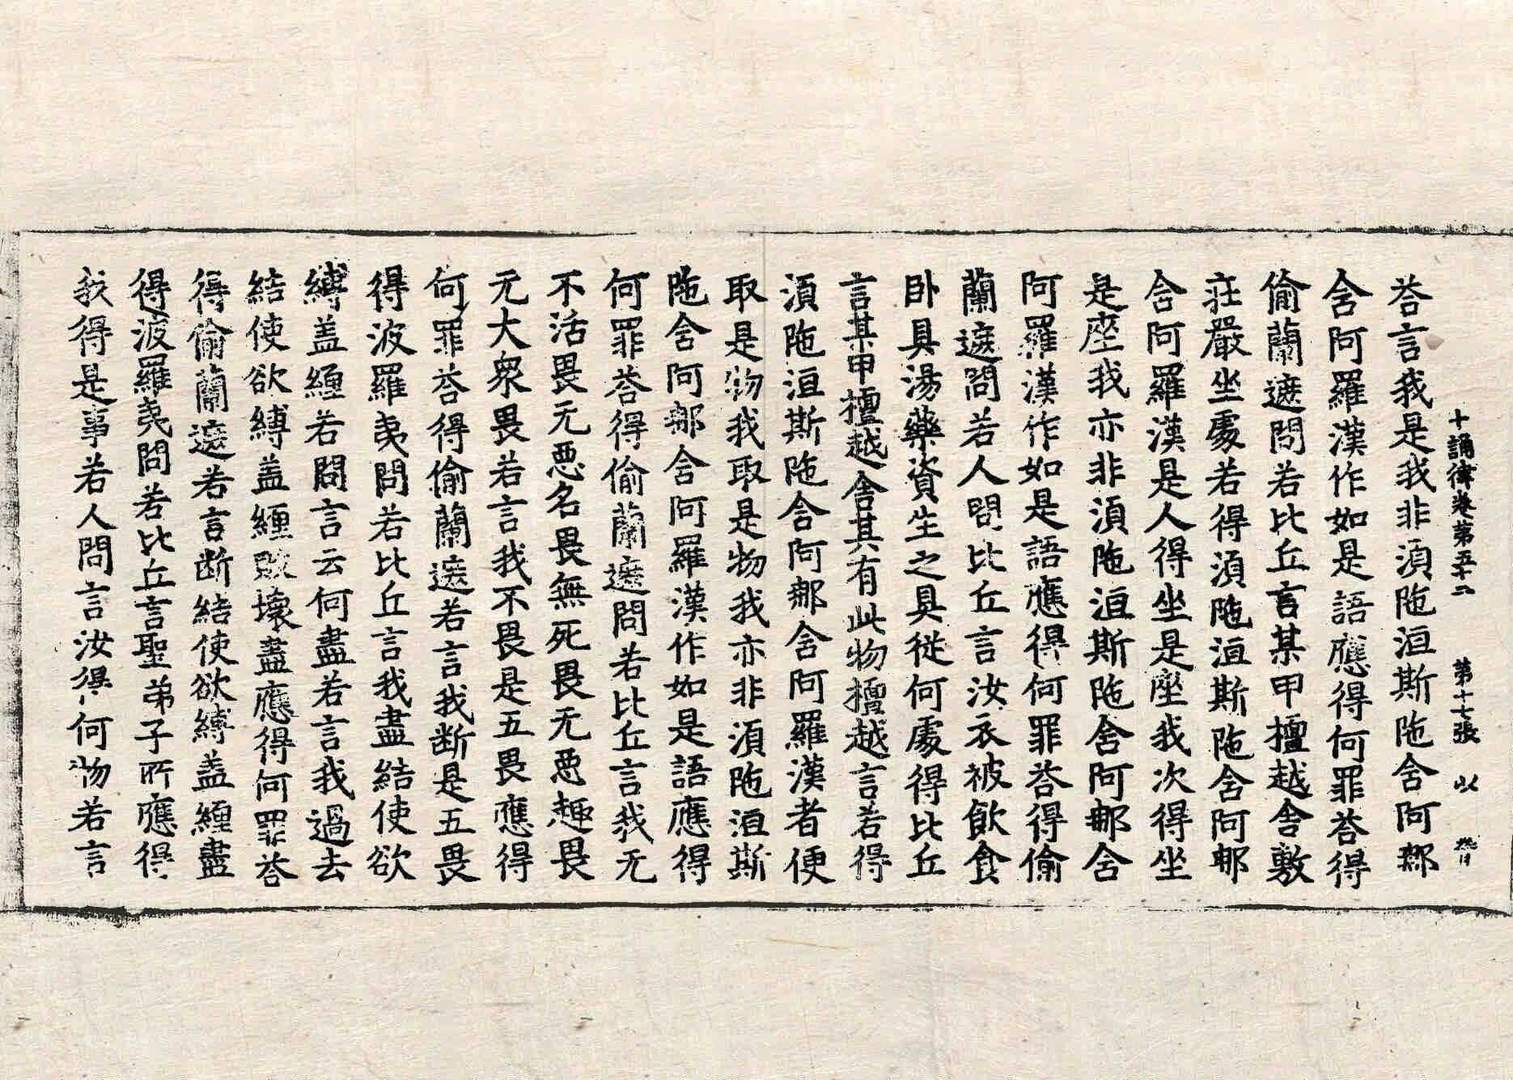 十誦律卷第五十二　第十七張　以
荅言我是我非湏陁洹斯陁含阿那
含阿羅漢作如是語應得何罪荅得
偷蘭遮問若比丘言某甲檀越舎敷
莊嚴坐處若得湏陁洹斯陁含阿那
含阿羅漢是人得坐是座我次得坐
是座我亦非湏陁洹斯陁含阿那含
阿羅漢作如是語應得何罪荅得偷
蘭遮問若人問比丘言汝衣被飲食
卧具湯藥資生之具從何處得比丘
言某甲檀越舎其有此物檀越言若得
湏陁洹斯陁含阿那含阿羅漢者便
取是物我取是物我亦非湏陁洹斯
陁含阿那含阿羅漢作如是語應得
何罪荅得偷蘭遮問若比丘言我无
不活畏无惡名畏無死畏无惡趣畏
无大衆畏若言我不畏是五畏應得
何罪荅得偷蘭遮若言我断是五畏
得波羅夷問若比丘言我盡結使欲
縛盖纏若問言云何盡若言我過去
結使欲縛盖纏壞盡應得何罪荅
得偷蘭遮若言断結使欲縛盖纏盡
得波羅夷問若比丘言聖弟子所應得
我得是事若人問言汝得何物若言